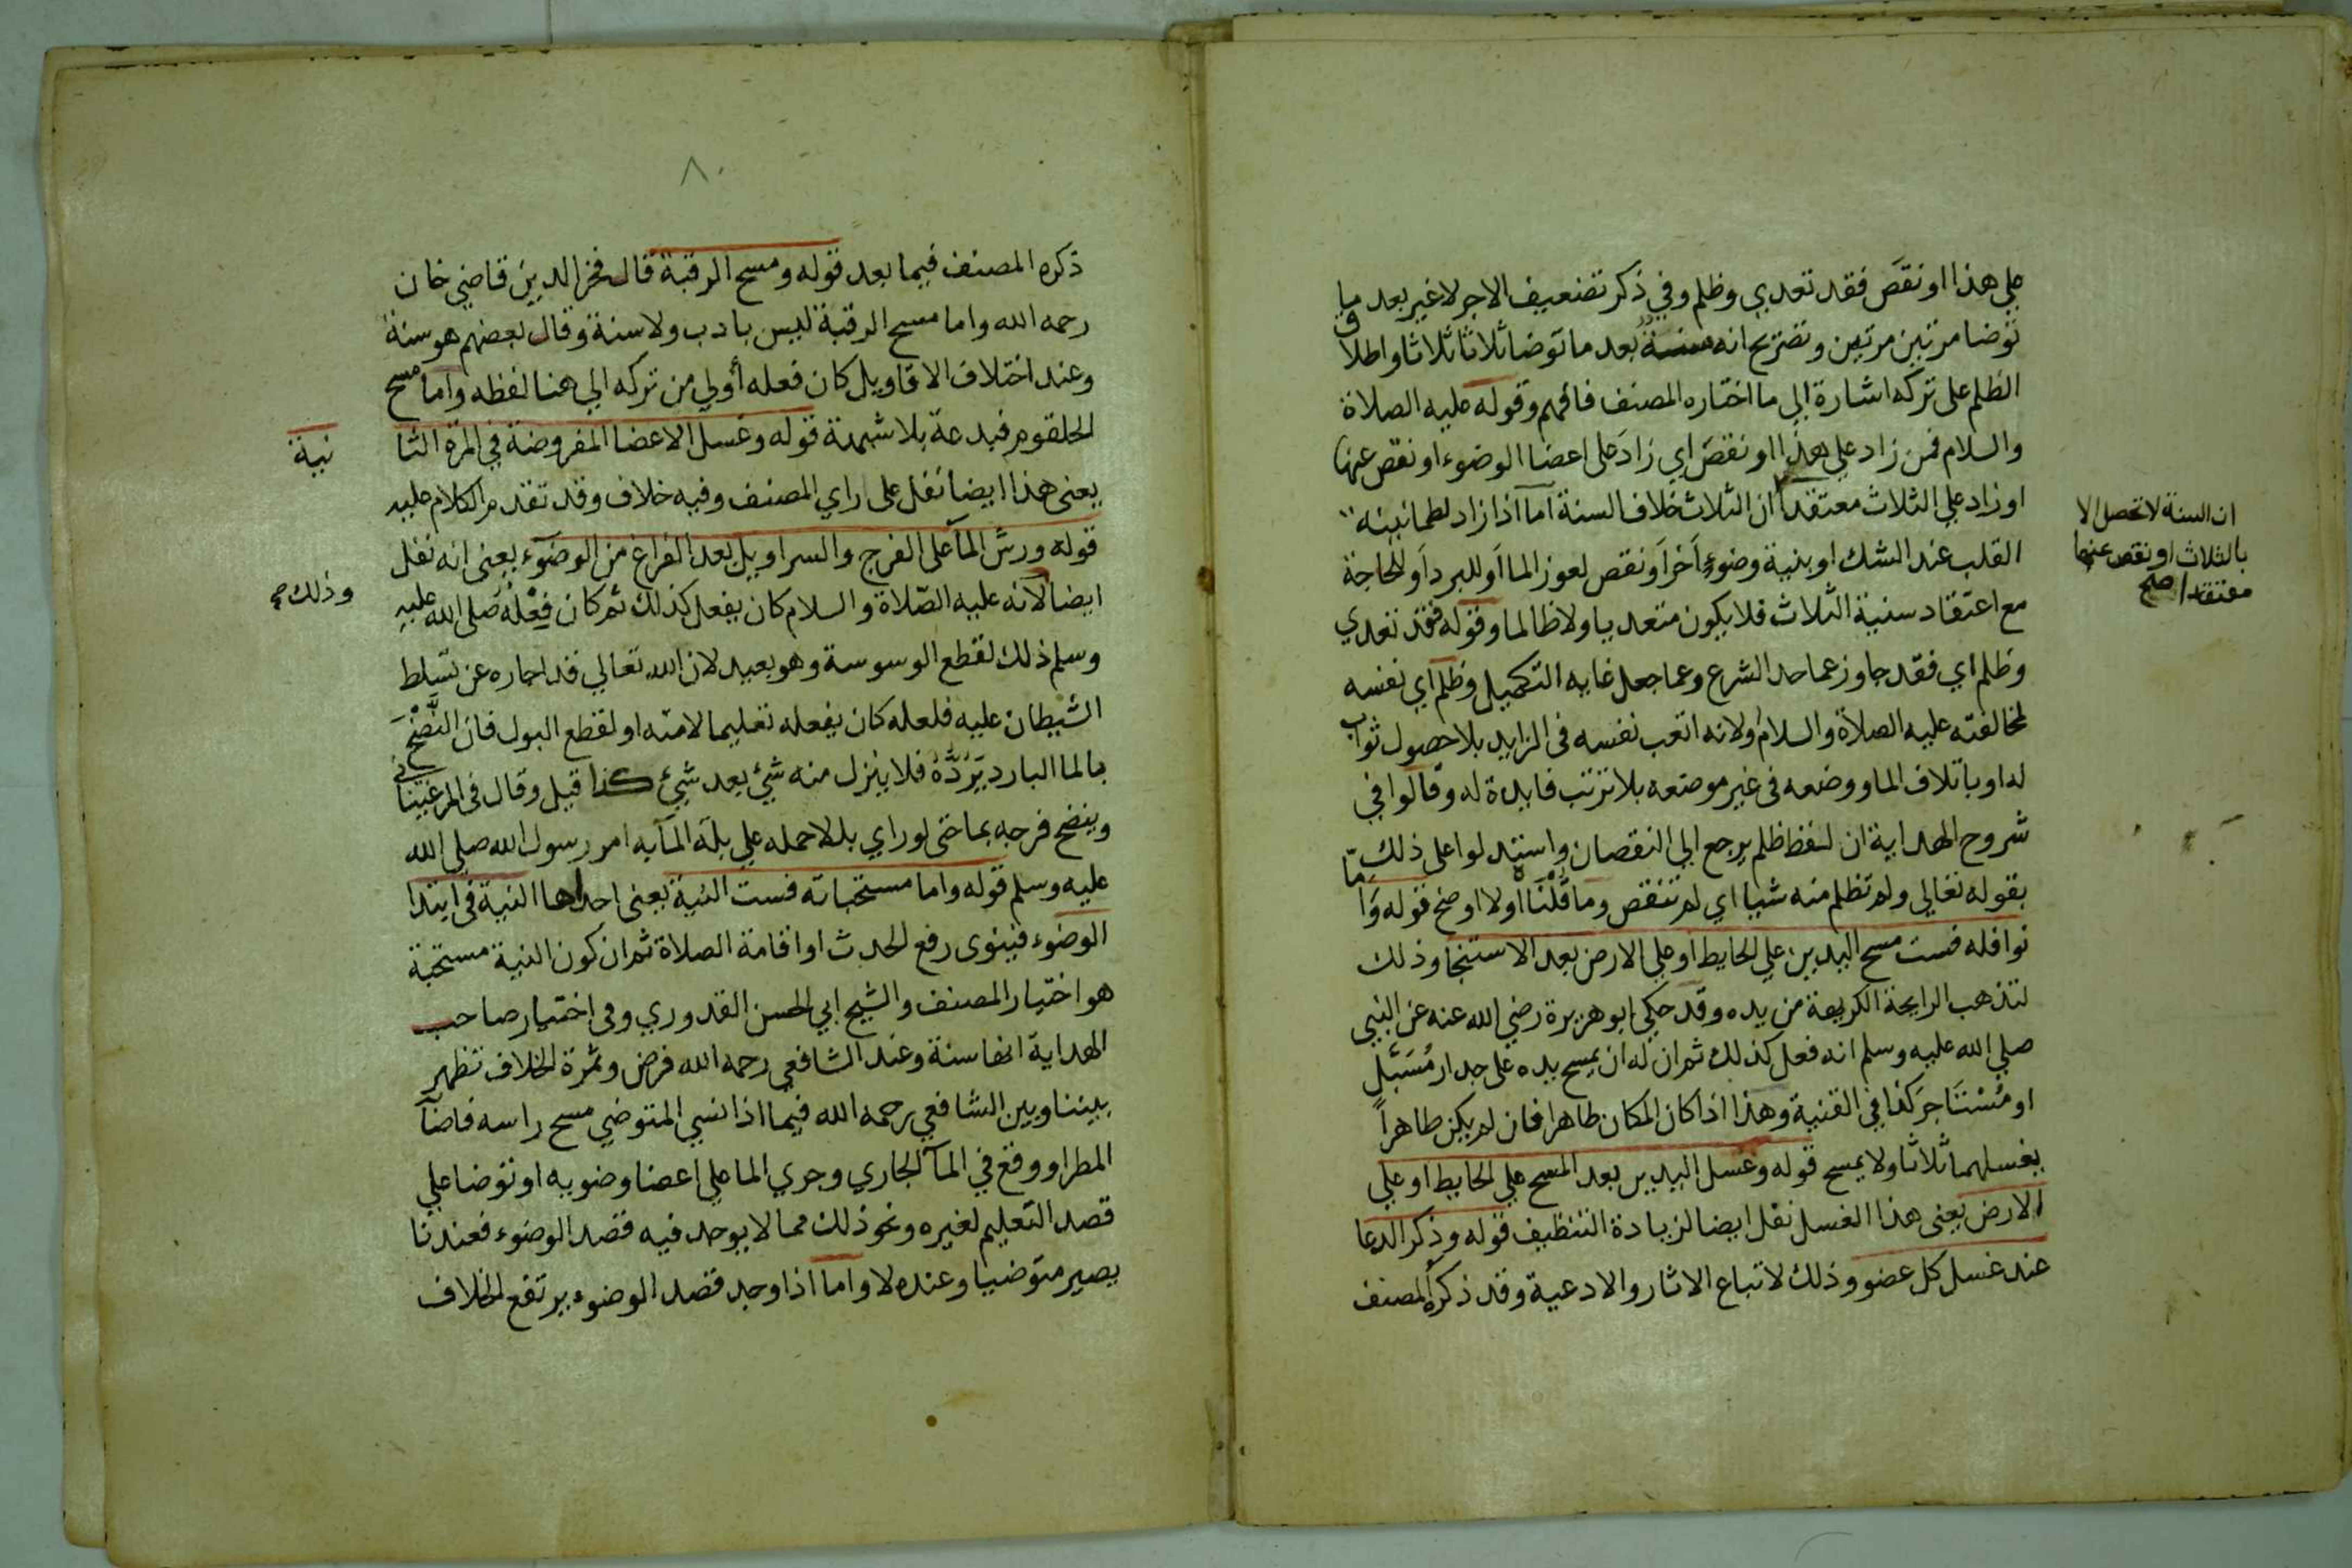 علي هذا او نقصَ فقد تعدي وظلم وفي ذكر تضعيف الاجر لا غير بعد ما
توضا مرتين مرتين وتضريح انه سنته بعد ما توضا ثلاثا ثلاثا واطلاق
الظلم على تركه اشارة الي ما اختاره المصنف فافهم وقوله عليه الصلاة
والسلام فمن زاد علي هذا او نقصَ اي زادَ على اعضا الوضوء او نقص عنها
او زاد علي الثلاث معتقدا ان الثلاث خلاف السنة اما اذا زاد لطمانينة
القلب عند الشك او بنية وضوءٍ آخر او نقص لعوز الما او للبرد او لحاجة
مع اعتقاد سنية الثلاث فلا يكون متعديا ولا ظالما وقوله فقد تعدي
وظلم اي فقد جاوز عما حد الشرع وعما جعل غاية التكميل وظلم اي نفسه
لمخالفته عليه الصلاة والسلام ولانه اتعب نفسه في الزايد بلا حصول ثواب
له او باتلاف الما ووضعه في غير موضعه بلا ترتب فايدة له وقالوا في
شروح الهداية ان لفظ ظلم يرجع الي النقصان واستدلوا على ذلك
بقوله تعالي ولم تظلم منه شيا اي لم تنقص وما قُلْنَاه اولا اوضح قوله وَامّا
نوافله فست مسح اليدين علي الحايط او علي الارض بعد الاستنجا وذلك
لتذهب الرايحة الكريهة من يده وقد حكي ابو هريرة رضي الله عنه عن النبي
صلي الله عليه وسلم انه فعل كذلك ثم ان له ان يمسح يده على جدار مُسَبَّل
او مُسْتَاجر كذا في القنية وهذا اذا كان المكان طاهرا فان لم يكن طاهراً
يغسلهما ثلاثا ولا يمسح قوله وغسل اليدين بعد المسح علي الحايط او علي
الارض يعني هذا الغسل نفل ايضا لزيادة التنظيف قوله وذكر الدعا
عند غسل كل عضو وذلك لاتباع الاثار والادعية وقد ذكره المصنف
ان السنة لا تحصل الا
بالثلاث او نقص عنها
معتقدا صح
٨٠
ذكره المصنف فيما بعد قوله ومسح الرقبة قال فخر الدين قاضي خان
رحمه الله واما مسح الرقبة ليس بادب ولا سنة وقال بعضهم هو سنة
وعند اختلاف الاقاويل كان فعله أولي من تركه الي هنا لفظه واما مسح
الحلقوم فبدعة بلا شبهة قوله وغسل الاعضا المفروضة في المرة الثا
نية
يعني هذا ايضا نفل على راي المصنف وفيه خلاف وقد تقدم الكلام عليه
قوله ورش المآ على الفرج والسراويل بعد الفراغ من الوضوء يعني انه نفل
ايضا لانه عليه الصّلاة والسلام كان يفعل كذلك ثم كان فِعْلُه صلي الله عليه
وذلك صح
وسلم ذلك لقطع الوسوسة وهو بعيد لان الله تعالي قد اجاره عن تسلط
الشيطان عليه فلعله كان يفعله تعليما لامته او لقطع البول فان النَّضْحَ
بالما البارد يَرُدُّهُ فلا ينزل منه شيئ بعد شيئ كذا قيل وقال في المرغينانى
وينضح فرجه بما حتى لو راي بللا حمله علي بلّة المآ به امر رسول الله صلي الله
عليه وسلم قوله واما مستحباته فست النية يعني احداها النية في ابتدا
الوضوء فينوى رفع الحدث او اقامة الصلاة ثم ان كون النية مستحبة
هو اختيار المصنف والشيخ ابي الحسن القدوري وفي اختيار صاحب
الهداية انها سنة وعند الشافعي رحمه الله فرض وثمرة الخلاف تظهر
بيننا وبين الشافعي رحمه الله فيما اذا نسي المتوضي مسح راسه فاصابه
المطر او وقع في المآ الجاري وجري الما علي اعضا وضوءه او توضا علي
قصد التعليم لغيره ونحو ذلك مما لا يوجد فيه قصد الوضوء فعندنا
يصير متوضيا وعنده لا واما اذا وجد قصد الوضوء يرتفع الخلاف